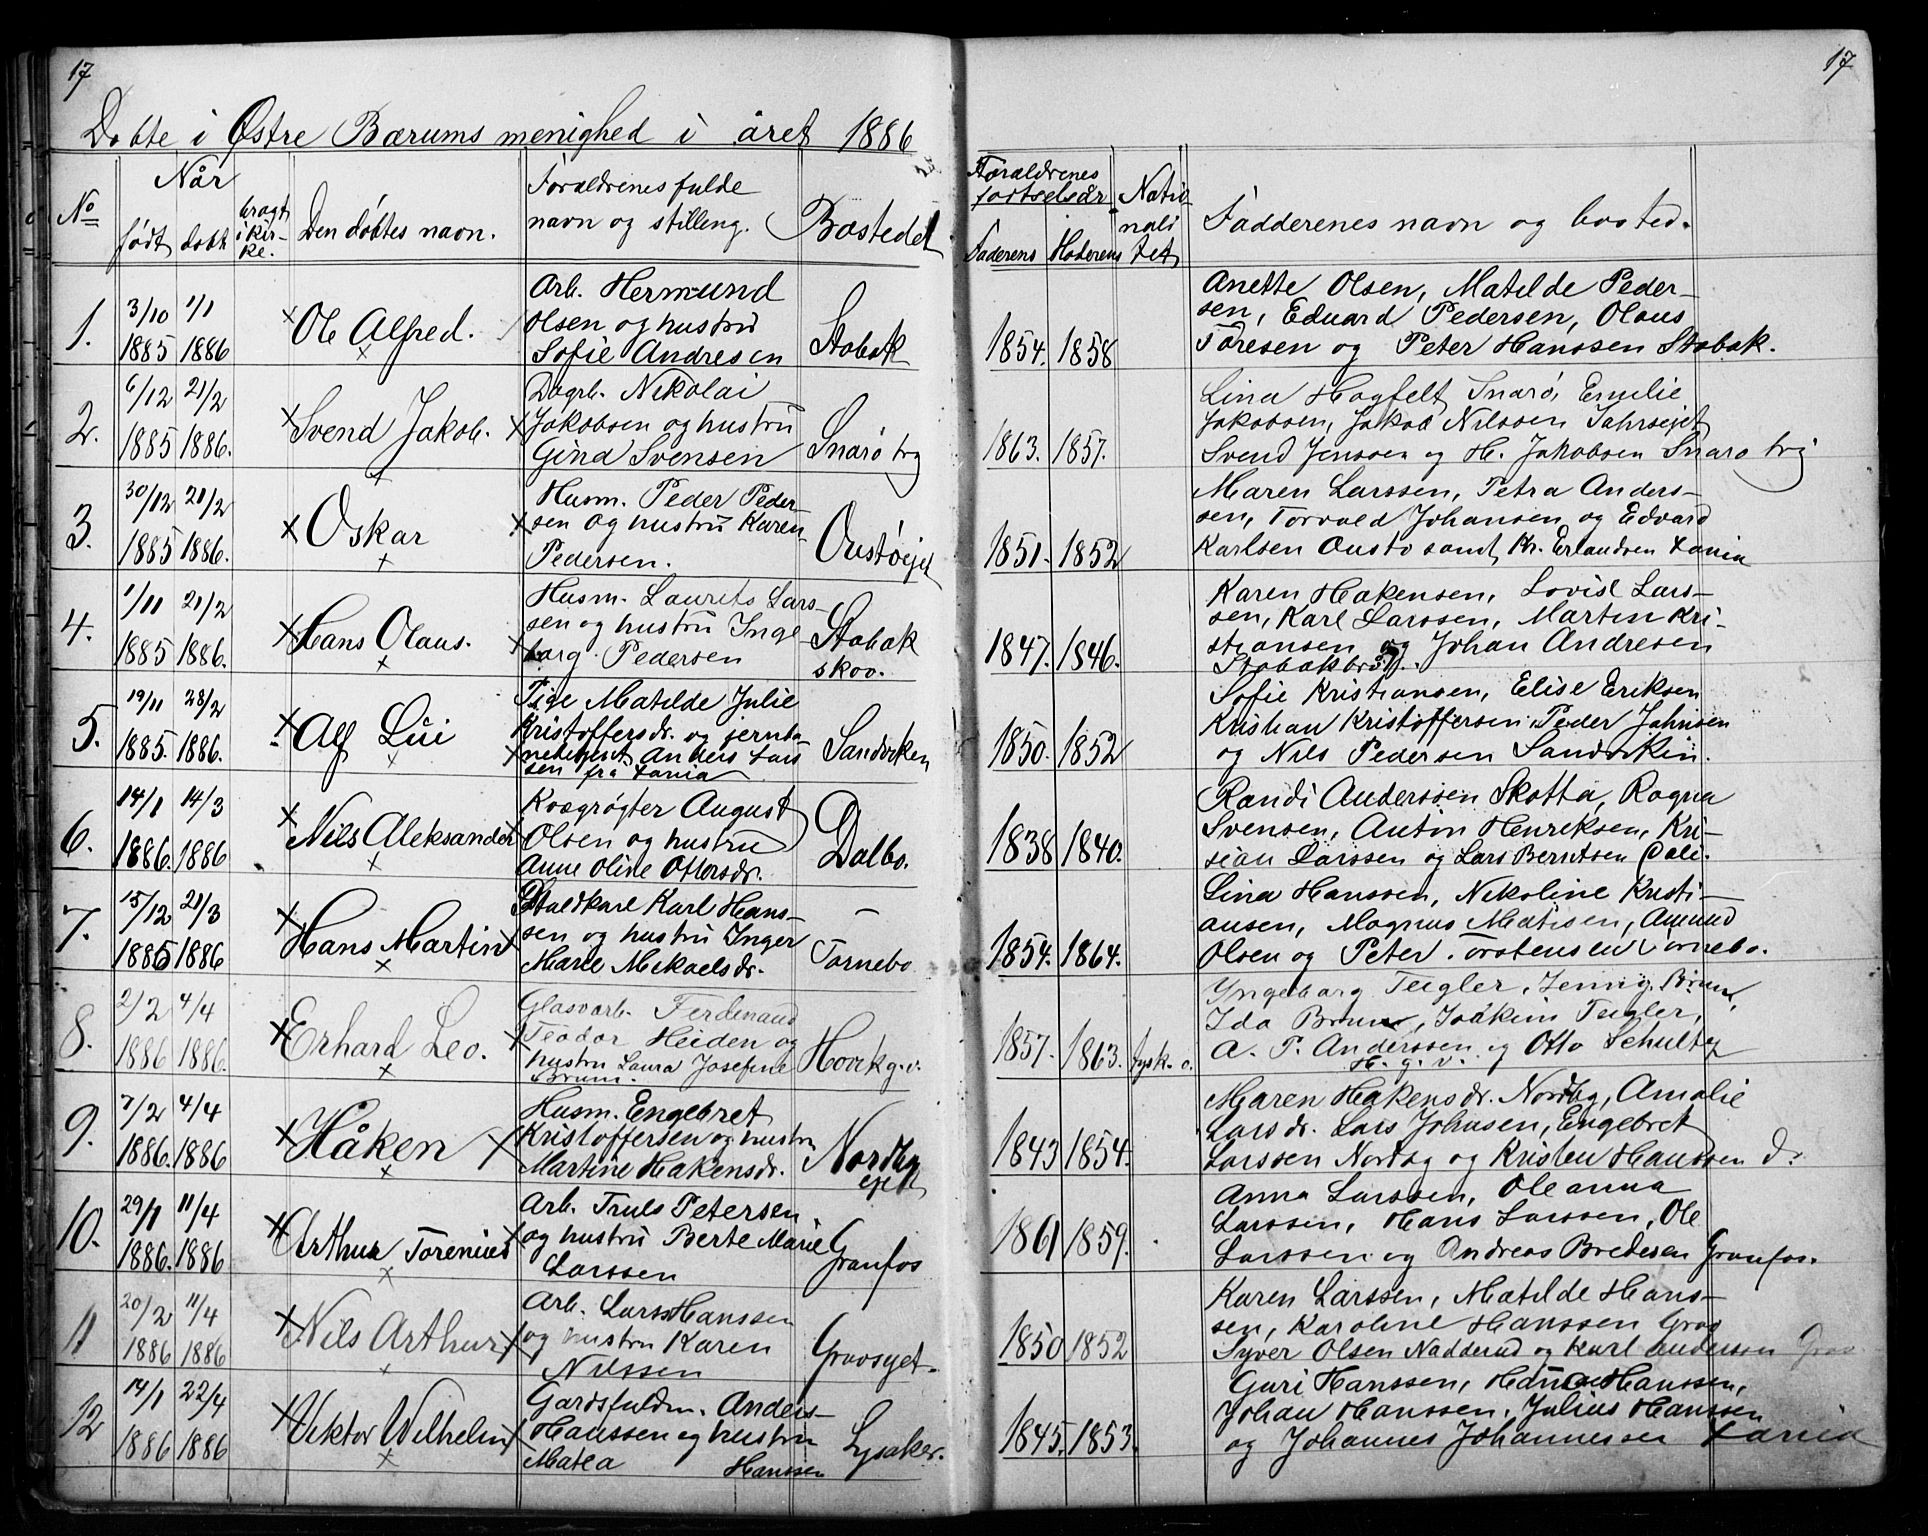 17
17
Døbte i Østre Bærums menighed i året 1886
No
Når
født
døbt
bragt i kirke.
Den døbtes navn.
Forældrenes fulde
navn og stilling.
Bostedet
Forældrenes
fødselsår
Faderens
Moderens
Natio-
nali
tet
Faddernes navn og bosted.
1.
3/10 1/1
1885 1886
Ole Alfred.
Arb. Hermund
Olsen og hustru
Sofie Andresen
Stabæk
1854. 1858
Anette Olsen, Matilde Peder-
sen, Eduard Pedersen, Olaus
Toresen og Peter Hanssen Stabæk.
2.
6/12 21/2
1885 1886.
Svend Jakob.
Dagrb. Nikolai
Jakobsen og hustru
Gina Svensen
Snarø brg
1863. 1857.
Lina Hagfelt Snarø, Emilie
Jakobsen, Jakob Nilssen
Svend Jenssen og H. Jakobsen Snarø brg
3.
30/12 21/2
1885 1886.
Oskar
Husm. Peder Peder-
sen og hustru Karen
Pedersen.
Oustøejet
1851. 1852
Maren Larssen, Petra Anders-
sen, Torvald Johansen og Edvard
Karlsen Oustø samt Kr. Erlandsen
4.
1/11 21/2
1885 1886.
Hans Olaus.
Husm. Laurits Lars-
sen og hustru Inge
borg Pedersen
Stabæk
skov.
1847. 1846.
Karen Hakensen, Lovise Lars-
sen, Karl Larssen, Martin Kri-
stiansen og Johan Andresen
5.
19/11 28/2
1885. 1886.
Alf Lui
Pige Matilde Julie
Kristoffersdr. og jernba
nebetjent Anders Lars
sen fra
Sandviken
1850. 1852
Sofie Kristiansen, Elise Eriksen
Kristian Kristoffersen Peder Jahnsen
og Nils Pedersen Sandviken.
6.
14/1 14/3
1886. 1886
Nils Aleksander
Kvægrøgter August
Olsen og hustru
Anne Oline Ottersdr.
Dalbo.
1838 1840.
Randi Anderssen Skotta, Ragna
Svensen, Anton Henriksen, Kri-
stian Larssen og Lars Berntsen
7.
15/12 21/3
1885 1886
Hans Martin
Staldkarl Karl Hans-
sen og hustru Inger
Marie Mikaelsdr.
Tornebo
1854. 1864.
Lina Hanssen, Nikoline Kristi-
ansen, Magnus Matisen, Amund
Olsen og Peter Torstensen Tornebo.
8.
2/2 4/4
1886 1886.
Erhard Leo.
Glasvarb. Ferdinand
Teodor Heiden og
hustru Laura Josefine
Brun.
Høvik g.v.
1857. 1863. tysk. o.
Yngeborg Teigler, Jenny Brun,
Ida Brun, Joakim Teigler,
A. P. Anderssen og Otto Schultz
H. g. v.
9.
7/2 4/4
1886. 1886
Håken
Husm. Engebret
Kristoffersen og hustru
Martine Hakensdr.
Nordby
ejet
1843 1854.
Maren Hakensdr. Nordby, Amalie
Larsdr. Lars Johnsen, Engebret
Larssen Nordby og Kristen Hanssen d.
10.
29/1 11/4
1886. 1886
Arthur Torenius
Arb. Truls Petersen
og hustru Berte Marie
Larssen
Granfos
1861 1859.
Anna Larssen, Oleanna
Larssen, Hans Larssen, Ole
Larssen og Andreas Bredesen Granfos.
11
20/2 11/4
1886 1886
Nils Arthur
Arb. Lars Hanssen
og hustru Karen
Nilssen
Gravsejet.
1850 1852
Karen Larssen, Matilde Hans-
sen, Karoline Hanssen Grav
Syver Olsen Nadderud og Karl Anderssen Grav
12
14/1 22/4
1886 1886
Viktor Wilhelm
Gardsfuldm. Anders
Hanssen og hustru
Matea Hanssen
Lysaker.
1845. 1853.
Guri Hanssen, Hanssen,
Johan Hanssen, Julius Hanssen
og Johannes Johannessen